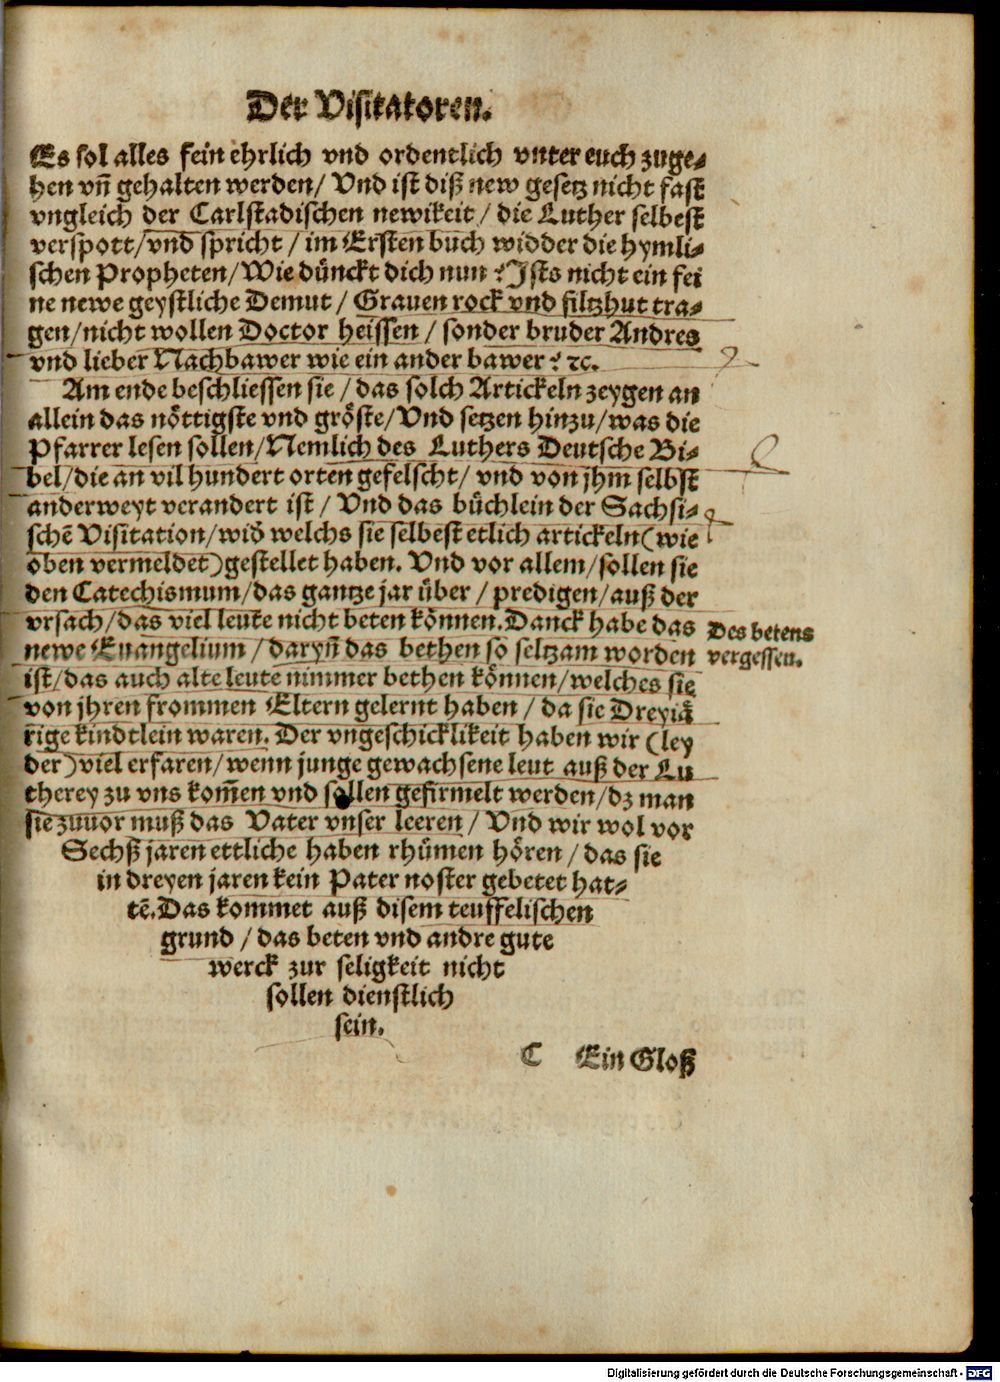 Der Visitatoren.
Es sol alles fein ehrlich vnd ordentlich vnter euch zuge⸗
hen vñ gehalten werden/ Vnd ist diß new gesetz nicht fast
vngleich der Carlstadischen newikeit / die Luther selbest
verspott/vnd spricht / im Ersten buch widder die hymli⸗
schen Propheten/Wie dünckt dich nun ? Ists nicht ein fei
ne newe geystliche Demut / Grauen rock vnd filtzhut tra⸗
gen/nicht wollen Doctor heissen / sonder bruder Andres
vnd lieber Nachbawer wie ein ander bawer ? ꝛc.
Am ende beschliessen sie / das solch Artickeln zeygen an
allein das nöttigste vnd gröste/Vnd setzen hinzu/was die
Pfarrer lesen sollen/Nemlich des Luthers Deutsche Bi⸗
bel/die an vil hundert orten gefelscht/ vnd von jhm selbst
anderweyt verandert ist / Vnd das büchlein der Sachsi⸗
schē Visitation/wiď welchs sie selbest etlich artickeln(wie
oben vermeldet)gestellet haben. Vnd vor allem/sollen sie
den Catechismum/das gantze jar über / predigen/auß der
vrsach/das viel leute nicht beten können. Danck habe das
newe Euangelium / daryñ das bethen so seltzam worden
ist/das auch alte leute nimmer bethen können/welches sie
von jhren frommen Eltern gelernt haben / da sie Dreyiä
rige kindtlein waren. Der vngeschicklikeit haben wir (ley
der)viel erfaren/wenn junge gewachsene leut auß der Lu
therey zu vns kom̃en vnd sollen gefirmelt werden/dz man
sie zuuor muß das Vater vnser leeren / Vnd wir wol vor
Sechß jaren ettliche haben rhümen hören / das sie
in dreyen jaren kein Pater noster gebetet hat⸗
tē. Das kommet auß disem teuffelischen
grund / das beten vnd andre gute
werck zur seligkeit nicht
sollen dienstlich
sein.
Des betens
vergessen.
C Ein Gloß
Digitalisierung gefördert durch die Deutsche Forschungsgemeinschaft - DFG